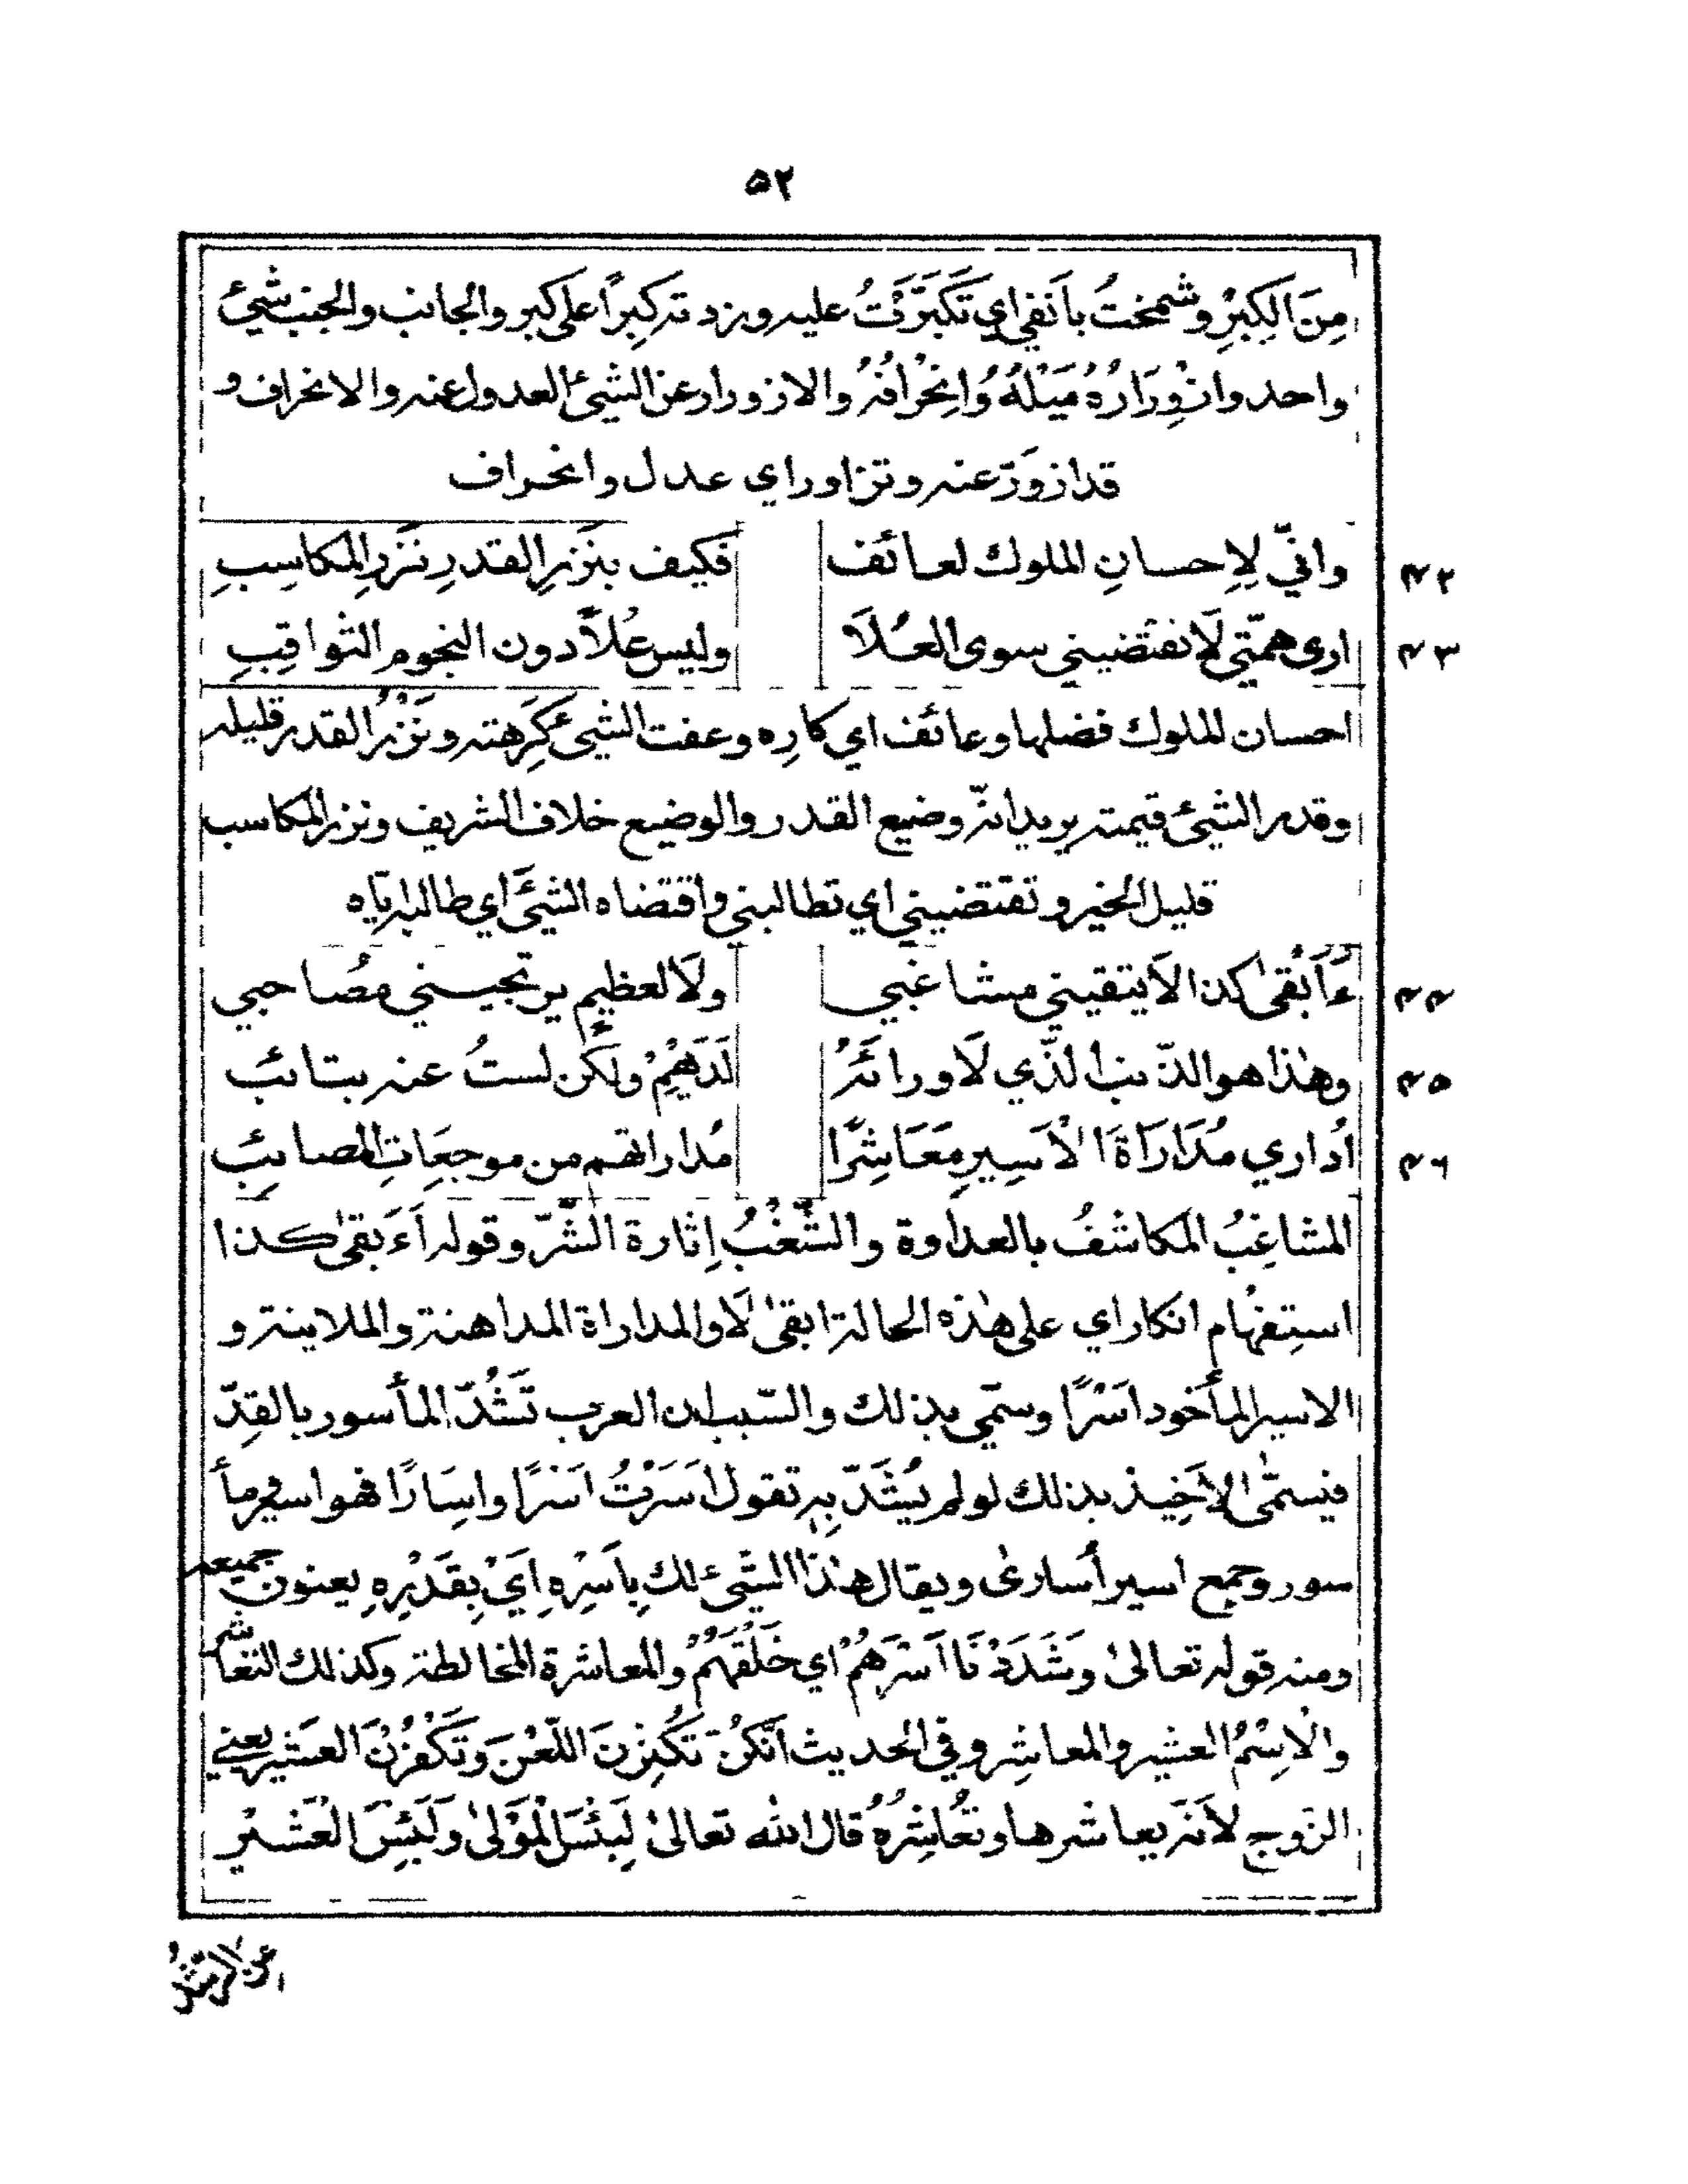 ٥٢
مِنَ الكِبْرِ وشمختُ بأنفي اي تَكَبَّرْتُ عليه وزدته كِبرًا على كبر والجانب والجنب شيئ
واحد وازْوِرَارُهُ مَيْلُهُ وَانْحِرَافُهُ والازورار عن الشيئ العدول عنه والانحراف و
قد ازوَرَّ عنه وتزاور اي عدل وانحراف
٤٢ وانّي لِاِحسانِ الملوك لعائف فكيف بنَزرِ القدرِ نَزرِ المكاسِبِ
٤٣ ارى همّتي لَا تقتضيني سوى العُلَا وليس عُلاً دون النجوم الثواقِبِ
احسان الملوك فضلها وعائف اي كارِه وعفت الشيئ كَرِهته ونَزْرُ القدر قليله
وقدر الشيئ قيمته يريد انّه وضيع القدر والوضيع خلاف الشريف ونزر المكاسب
قليل الخير وتقتضيني اي تطالبني واقتضاه الشيَّ اي طالبه ايّاه
٤٤ ءَاَبْقىٰ كذا لَا يتقيني مشاغبي ولَا لعظيم يرتجيني مُصاحبي
٤٥ وهٰذا هو الذّنب الَّذي لَا وراءَهُ لَدَيْهِمْ ولٰكن لستُ عنه بتائبِ
٤٦ اُداري مُدَارَاةَ الْاَسِيرِ مَعَاشِرًا مُداراتهم من موجِعَاتِ المصائبِ
المشاغِبُ المكاشفُ بالعداوة والشَّغْبُ اِثارة الشّرّ وقوله اَءَبقىٰ كذا
استِفهام انكار اي على هٰذه الحالة ابقىٰ لَا والمداراة المداهنة والملاينة و
الاسير المأخوذ اَسْرًا وسمّي بذلك والسّبب ان العرب تَشُدّ المأسور بالقِدّ
فيسمّٰى الاَخِيذ بذلك لو لم يُشَدّ بِه تقول اَسَرْتُ اَسْرًا واِسَارًا فهو اسير ومأ
سور وجمع اسير أُسارىٰ ويقال هٰذا الشيئ لك بِاَسْرِه اَيْ بِقَدِّهِ يعنون جميعه
ومنه قوله تعالىٰ وَشَدَدْنَا اَسْرَهُمْ اي خَلْقَهُمْ والمعاشرة المخالطة وكذلك التعاشر
والْاِسْمُ العشير والمعاشِر وفي الحديث اَنَّكُنَّ تَكْثِرْنَ اللَّعْنَ وَتَكْفُرْنَ العَشير يعني
الزّوج لاَنّه يعاشرها وتُعَاشِرُهُ قال الله تعالىٰ لَبِئْسَ الْمَوْلىٰ وَلَبِئْسَ الْعَشِيْر